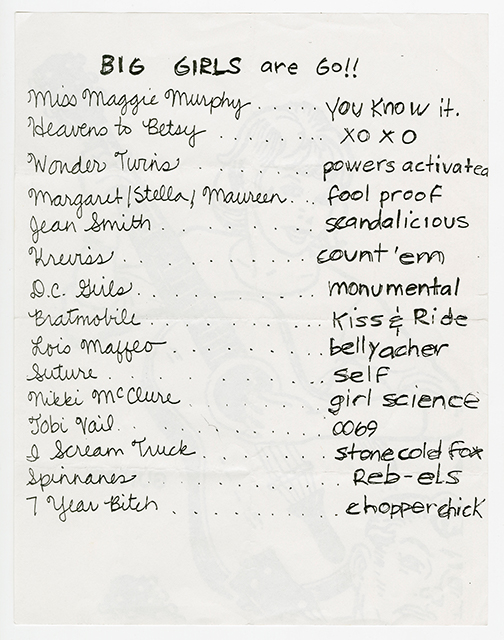 BIG GIRLS are GO!!
Miss Maggie Murphy ...... you know it.
Heavens to Betsy ........ XOXO
Wonder Twins .......... powers activated
Margaret/Stella/Maureen... fool proof
Jean Smith ........... scandalicious
Kreviss ............ count 'em
D.C. Girls ............ monumental
Bratmobile ............ Kiss & Ride
Lois Maffeo .......... bellyacher
Suture ............. self
Nikki McClure ......... girl science
Tobi Vail ............ 0069
I Scream Truck ........ stone cold fox
Spinnanes ............ Reb-els
7 Year Bitch .......... chopperchick